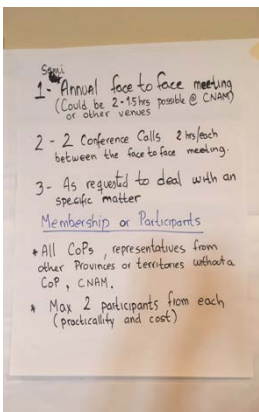 Semi
1- Annual face to face meeting
(Could be 2-1.5hrs possible @ CNAM)
or other venues
2 - 2 Conference Calls 2 hrs/each
between the face to face meeting.
3- As requested to deal with an
specific matter
Membership or Participants
* All CoPs, representatives from
other Provinces or territories without a
CoP, CNAM.
* Max 2 participants from each
(practicallity and cost)